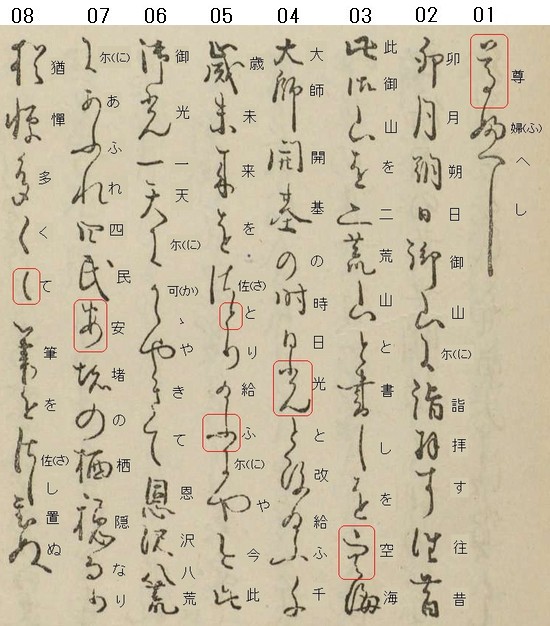 01
尊婦(ふ)へし
02
卯月朔日御山尓(に)詣拝す往昔
03
此御山を二荒山と書しを空海
04
大師開基の時日光と改給ふ千
05
歳未来を佐(さ)とり給ふ尓(に)や今此
06
御光一天尓(に)可(か)ゝやきて恩沢八荒
07
尓(に)あふれ四民安堵の栖隠なり
08
猶憚多くて筆を佐(さ)し置ぬ